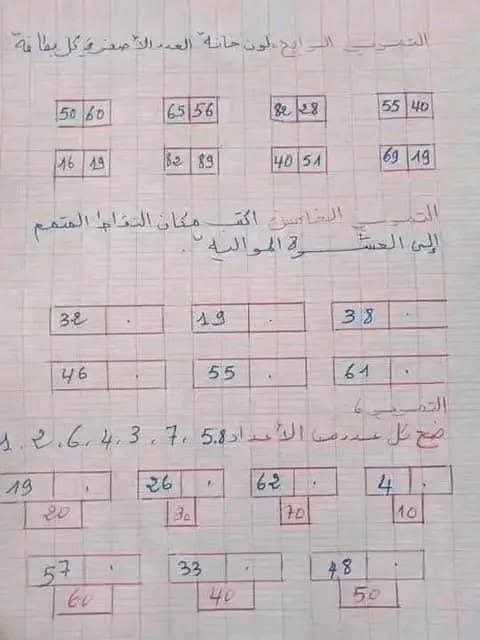 التمرين الرابع: لون خانة العدد الأصغر في كل بطاقة
50 60 65 56 82 28 55 40
16 19 82 89 40 51 69 19
التمرين الخامس اكتب مكان النقاط المتمم
إلى العشرة الموالية.
32 . 19 . 38 .
46 . 55 . 61 .
التمرين 6
ضع كل عدد من الأعداد 1، 2، 6، 4، 3، 7، 5،8
19 . 26 . 62 . 4 .
20 30 70 10
57 . 33 . 48
60 40 50